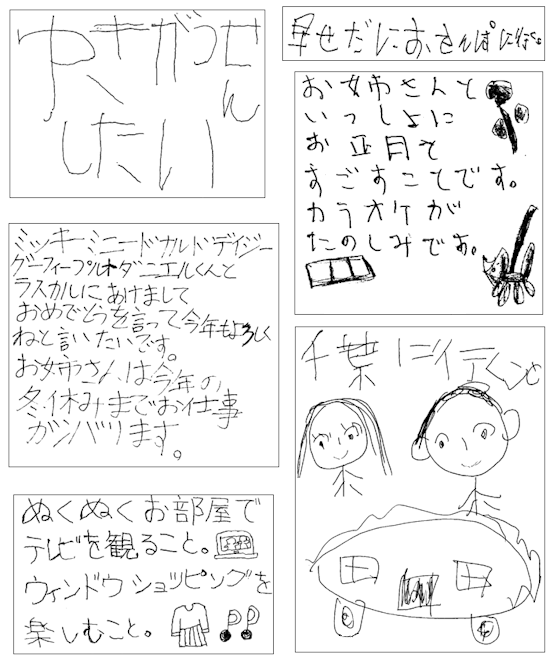 ゆきがっせ
ん
したい
早せだにお、さんぽに行く
お姉さんと
いっしょに
お正月を
すごすことです。
カラオケが
たのしみです。
ミッキーミニードナルドデイジー
グーフィープルトダニエルくんと
ラスカルにあけまして
おめでとうを言って今年もよろしく
ねと言いたいです。
お姉さんは今年の
冬休みまでお仕事
ガンバります。
千葉に行くこと
ぬくぬくお部屋で
テレビを観ること。
ウィンドウショッピングを
楽しむこと。